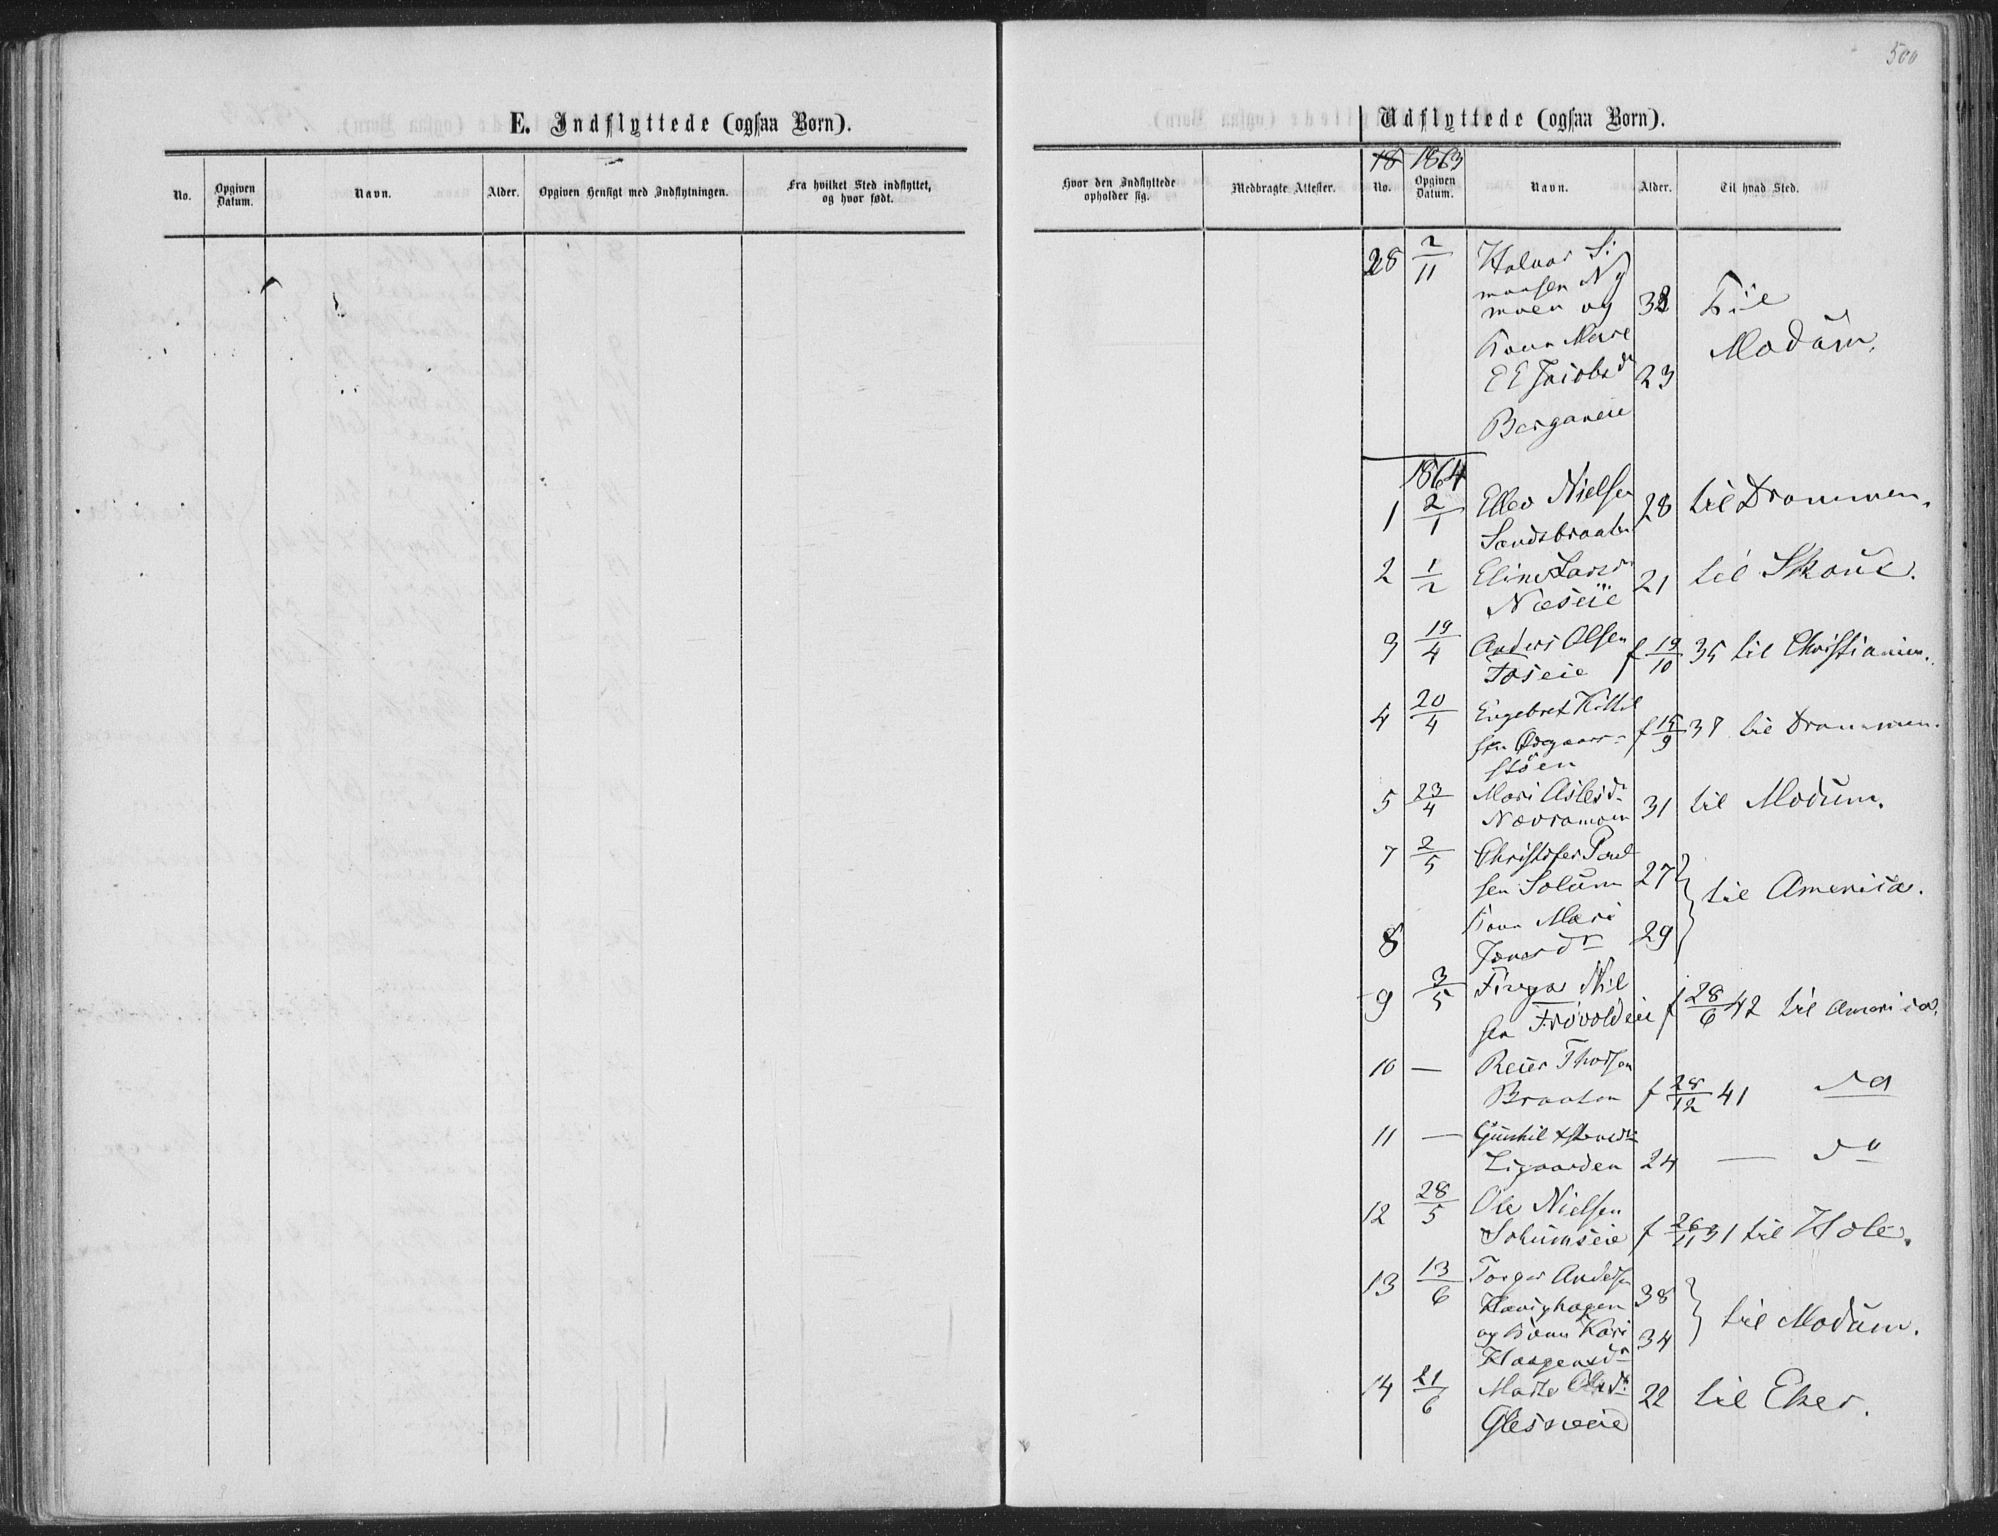 500
E. Indflyttede (ogsaa Børn).
No. Opgiven Datum. Navn. Alder. Opgiven Hensigt med Indflytningen. Fra hvilket Sted indflyttet, og hvor født.
Udflyttede (ogsaa Børn).
18 1863
Hvor den Indflyttede opholder sig. Medbragte Attester. No. Opgiven Datum. Navn. Alder. Til hvad Sted.
28 2/11 Halvor Si
monsen Ny
moen og 38 Til
Kone Marie Modum.
E E Jacobsdr 23
Berganeie
1864
1 2/1 Ellev Nielsen 28 til Drammen.
Sandsbraaten
2 1/2 Eline Larsdr 21 til Skoug.
Næseie
3 19/4 Anders Olsen
Foseie f 19/10 35 til Christiania.
4 20/4 Engebret Kittil
sen Ødegaars- f 15/9 37 til Drammen.
støen
5 23/4 Mari Aslesdr
Nævramoen 31 til Modum.
7 2/5 Christofer Paul
sen Solum 27
til America.
8 Kone Mari
29
9 3/5 Finger Nil
sen Frøvoldeie f 28/6 42 til America.
10 — Reier Thorsen
Braaten f 28/12 41 do
11 — Gunhil
Ligaarden 24 — do
12 28/5 Ole Nielsen
Solumseie f 26/11 31 til Hole.
13 13/6 Torger Andersen
38
og Kone Kari 34 til Modum.
14 21/6 Marte Olsdr 22 til Eker.
Glesneeie